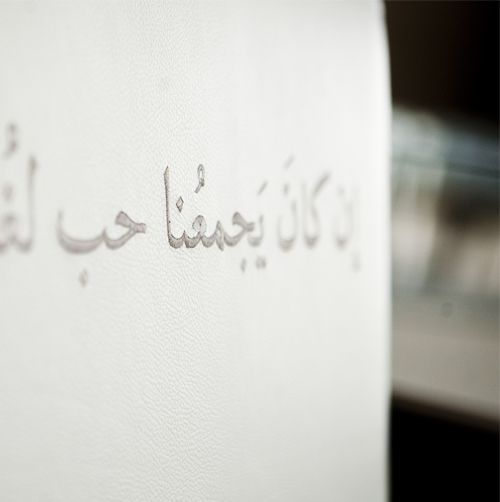 إن كانَ يَجمعُنا حب